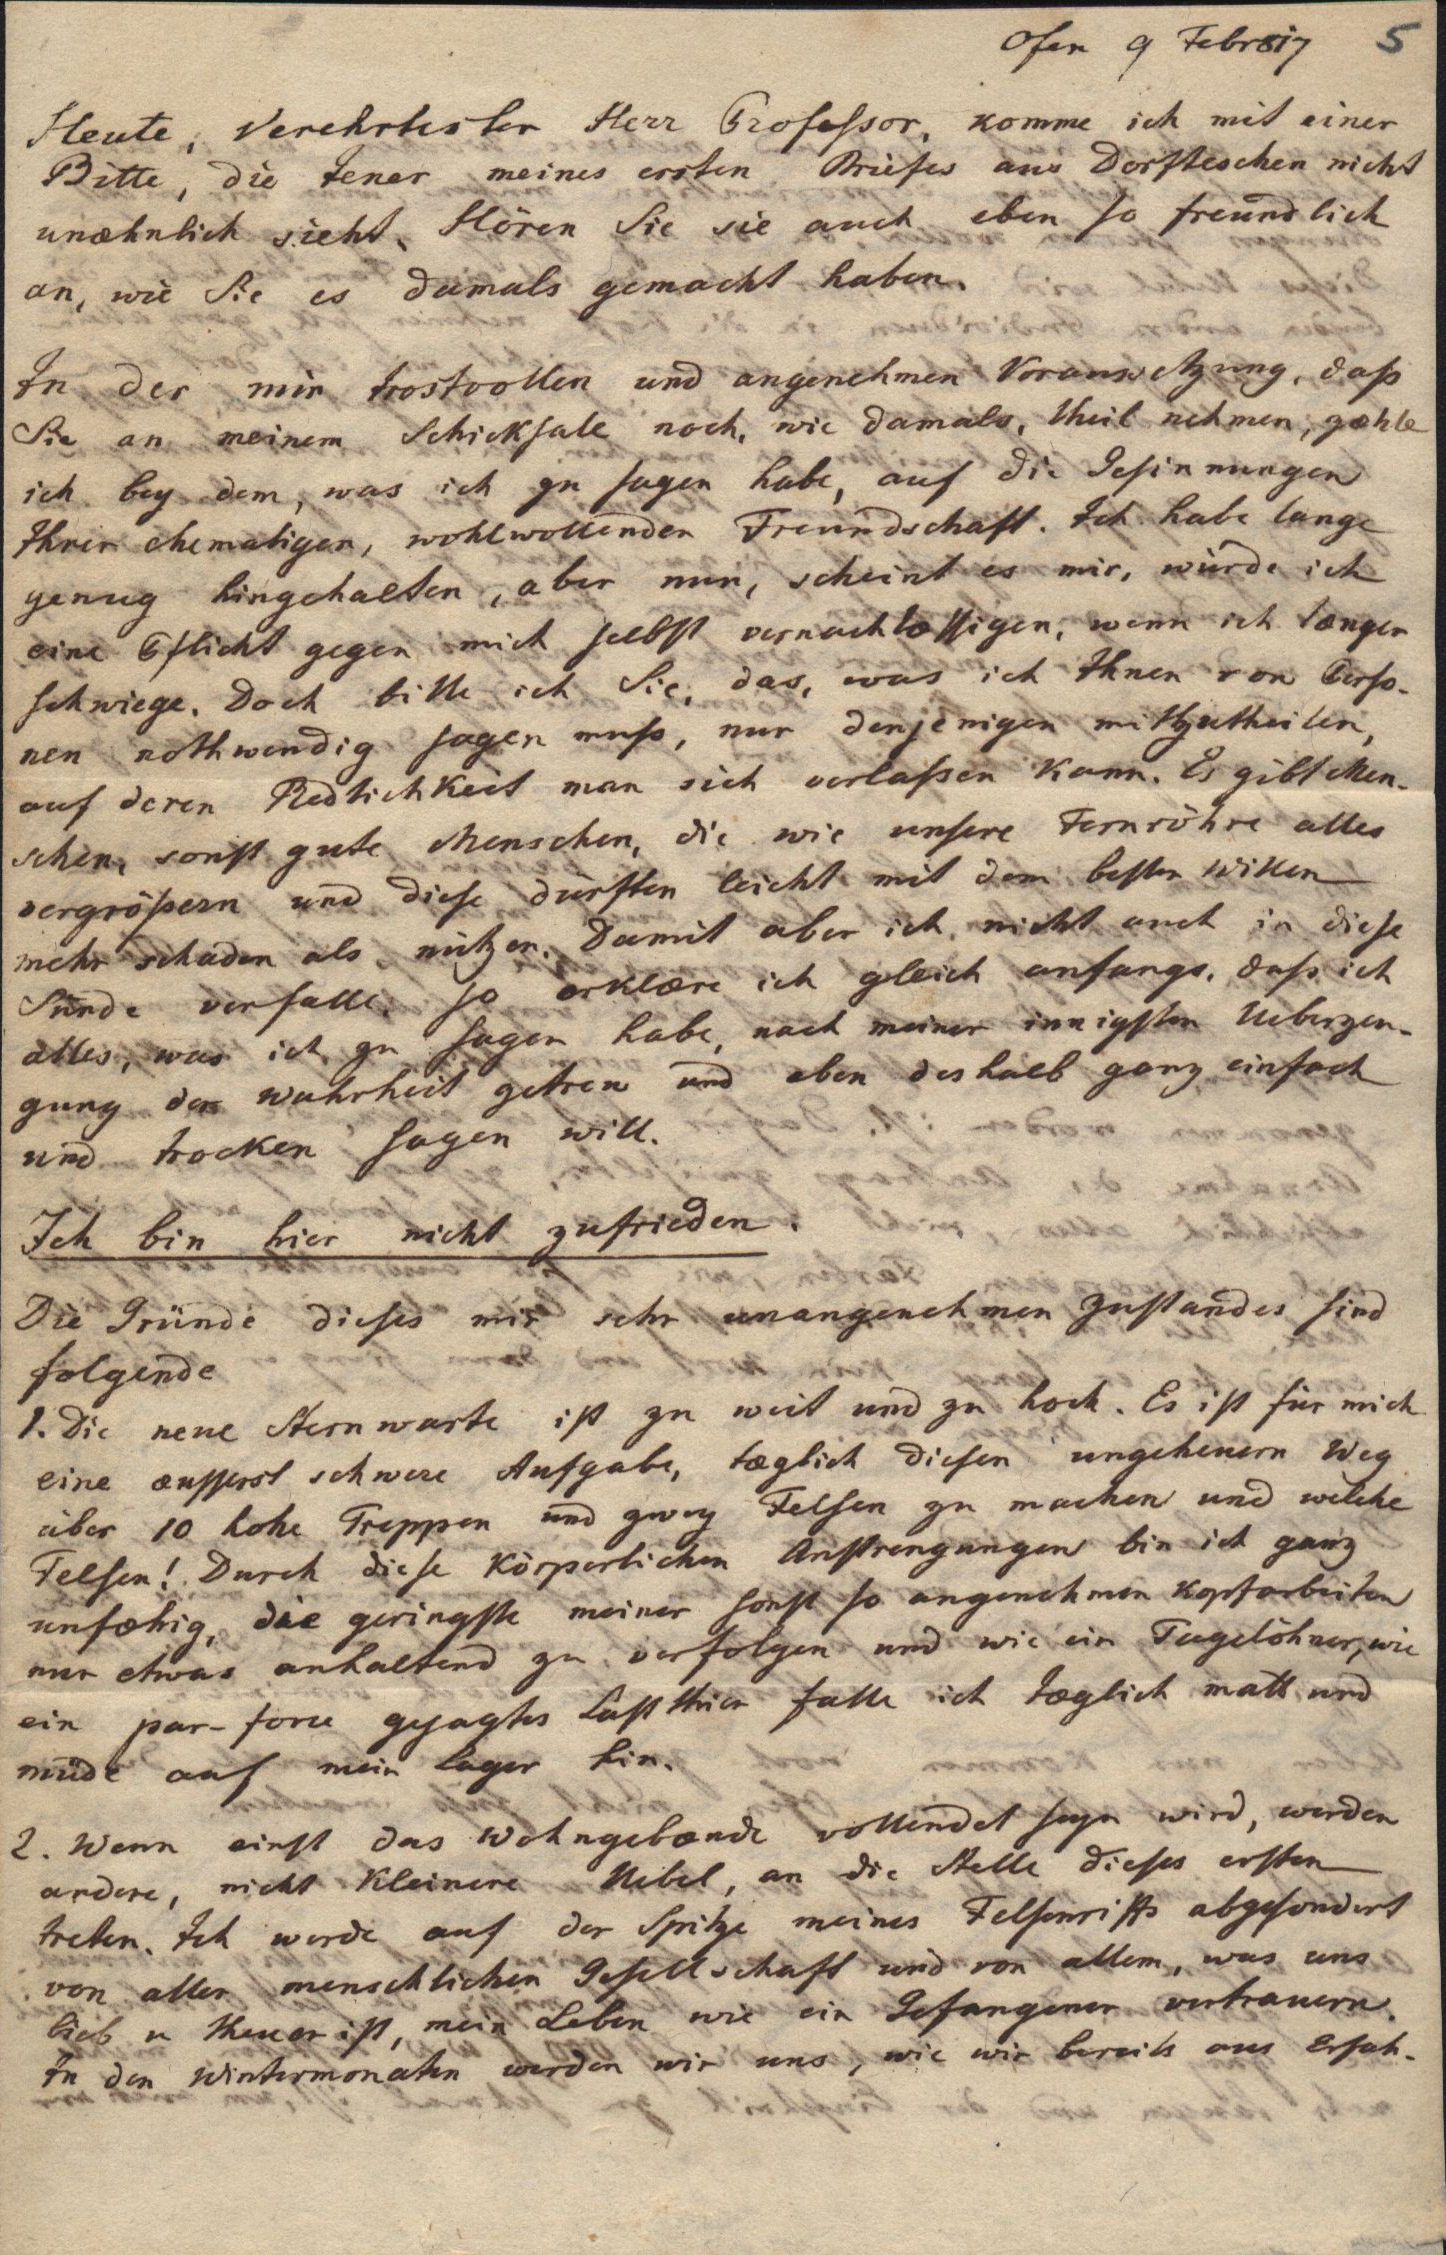 Ofen 9 Febr 817 5
Heute, Verehrtester Herr Professor, komme ich mit einer
Bitte, die jener meines ersten Briefes aus Dorfteschen nicht
unæhnlich sieht. Hören Sie sie auch eben so freundlich
an, wie Sie es damals gemacht haben.
In der mir trostvollen und angenehmen Voraussetzung, daß
Sie an meinem Schicksale noch, wie damals, theil nehmen, zæhle
ich bey dem, was ich zu sagen habe, auf die Gesinnungen
Ihrer ehemaligen, wohlwollenden Freundschaft. Ich habe lange
genug hingehalten, aber nun, scheint es mir, würde ich
eine Pflicht gegen mich selbst vernachlæssigen, wenn ich længer
schwiege. Doch bitte ich Sie, das, was ich Ihnen von Perso-
nen nothwendig sagen muß, nur denjenigen mitzutheilen,
auf deren Redlichkeit man sich verlaßen kann. Es gibt Men-
schen, sonst gute Menschen, die wie unsere Fernröhre alles
vergrößern und diese dürften leicht mit dem besten Willen
mehr schaden als nützen. Damit aber ich nicht auch in diese
Sünde verfalle, so erklære ich gleich anfangs, daß ich
alles, was ich zu sagen habe, nach meiner innigsten Ueberzeu-
gung der Wahrheit getreu und eben deshalb ganz einfach
und trocken sagen will.
Ich bin hier nicht zufrieden.
Die Gründe dieses mir sehr unangenehmen Zustandes sind
folgende
1. Die neue Sternwarte ist zu weit und zu hoch. Es ist für mich
eine æusserst schwere Aufgabe, tæglich diesen ungeheuern Weg
über 10 hohe Treppen und zwey Felsen zu machen und welche
Felsen! Durch diese körperlichen Anstrengungen bin ich ganz
unfæhig, die geringste meiner sonst so angenehmen Kopfarbeiten
nur etwas anhaltend zu verfolgen und wie ein Tagelöhner, wie
ein par-force gejagtes Lastthier falle ich tæglich matt und
müde auf mein Lager hin.
2. Wenn einst das Wohngebæude vollendet seyn wird, werden
andere, nicht kleinere Uebel, an die Stelle dieses ersten
treten. Ich werde auf der Spitze meines Felsenriffs abgesondert
von aller menschlichen Gesellschaft und von allem, was uns
lieb u theuer ist, mein Leben wie ein Gefangener vertrauern.
In den Wintermonaten werden wir uns, wie wir bereits aus Erfah-